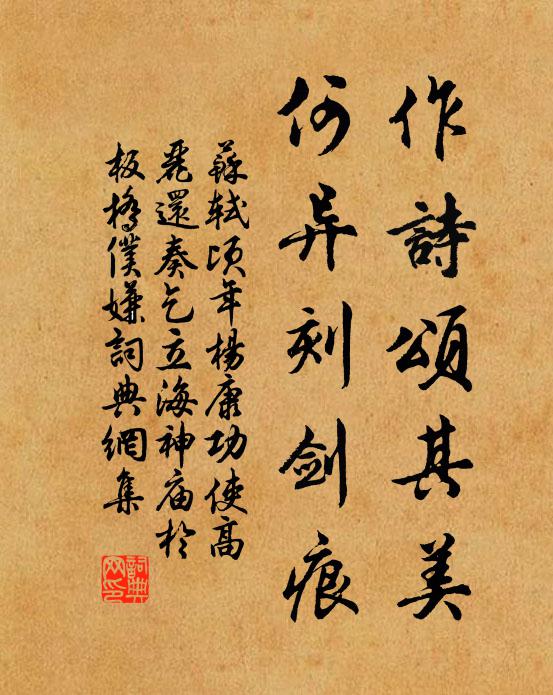 作詩頌其美
何异刻劍痕
蘇軾頃年楊康功使高
麗還奏乞立海神庙於
板橋僕嫌詞典網集
詞典
网印